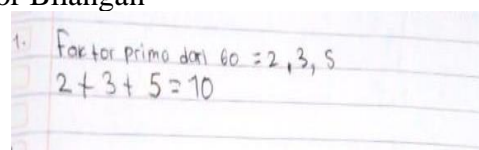 or Bilangan
1. Faktor primo dari 60 = 2, 3, 5
2 + 3 + 5 = 10